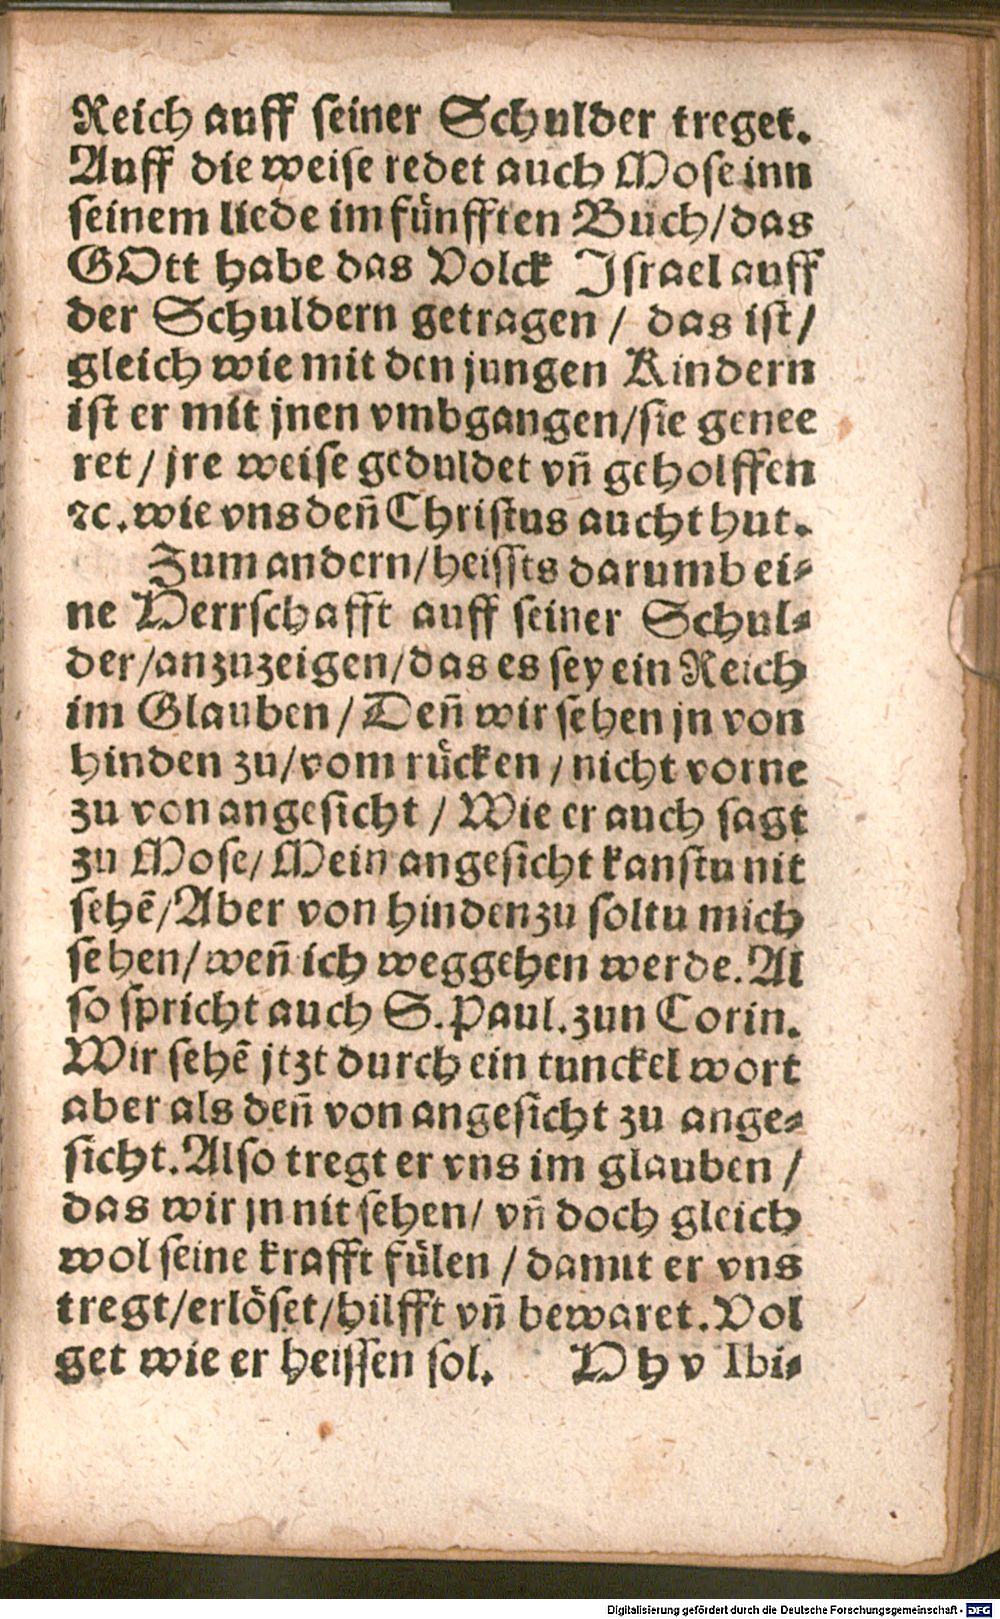 Reich auff seiner Schulder treget.
Auff die weise redet auch Mose inn
seinem liede im fünfften Buch/das
GOtt habe das Volck Israel auff
der Schuldern getragen / das ist/
gleich wie mit den jungen Kindern
ist er mit jnen vmbgangen/sie genee
ret / jre weise geduldet vn̄ geholffen
ꝛc. wie vns den̄ Christus auch thut.
Zum andern/heissts darumb ei⸗
ne Herrschafft auff seiner Schul⸗
der/anzuzeigen/das es sey ein Reich
im Glauben / Den̄ wir sehen jn von
hinden zu/vom rücken / nicht vorne
zu von angesicht / Wie er auch sagt
zu Mose/ Mein angesicht kanstu nit
sehē/Aber von hinden zu soltu mich
sehen/wen̄ ich weggehen werde. Al
so spricht auch S. Paul. zun Corin.
Wir sehē jtzt durch ein tunckel wort
aber als den̄ von angesicht zu ange⸗
sicht. Also tregt er vns im glauben /
das wir jn nit sehen/ vn̄ doch gleich
wol seine krafft fülen / damit er vns
tregt/erlöset/hilfft vn̄ bewaret. Vol
get wie er heissen sol. H h v Ibi⸗
Digitalisierung gefördert durch die Deutsche Forschungsgemeinschaft - DFG